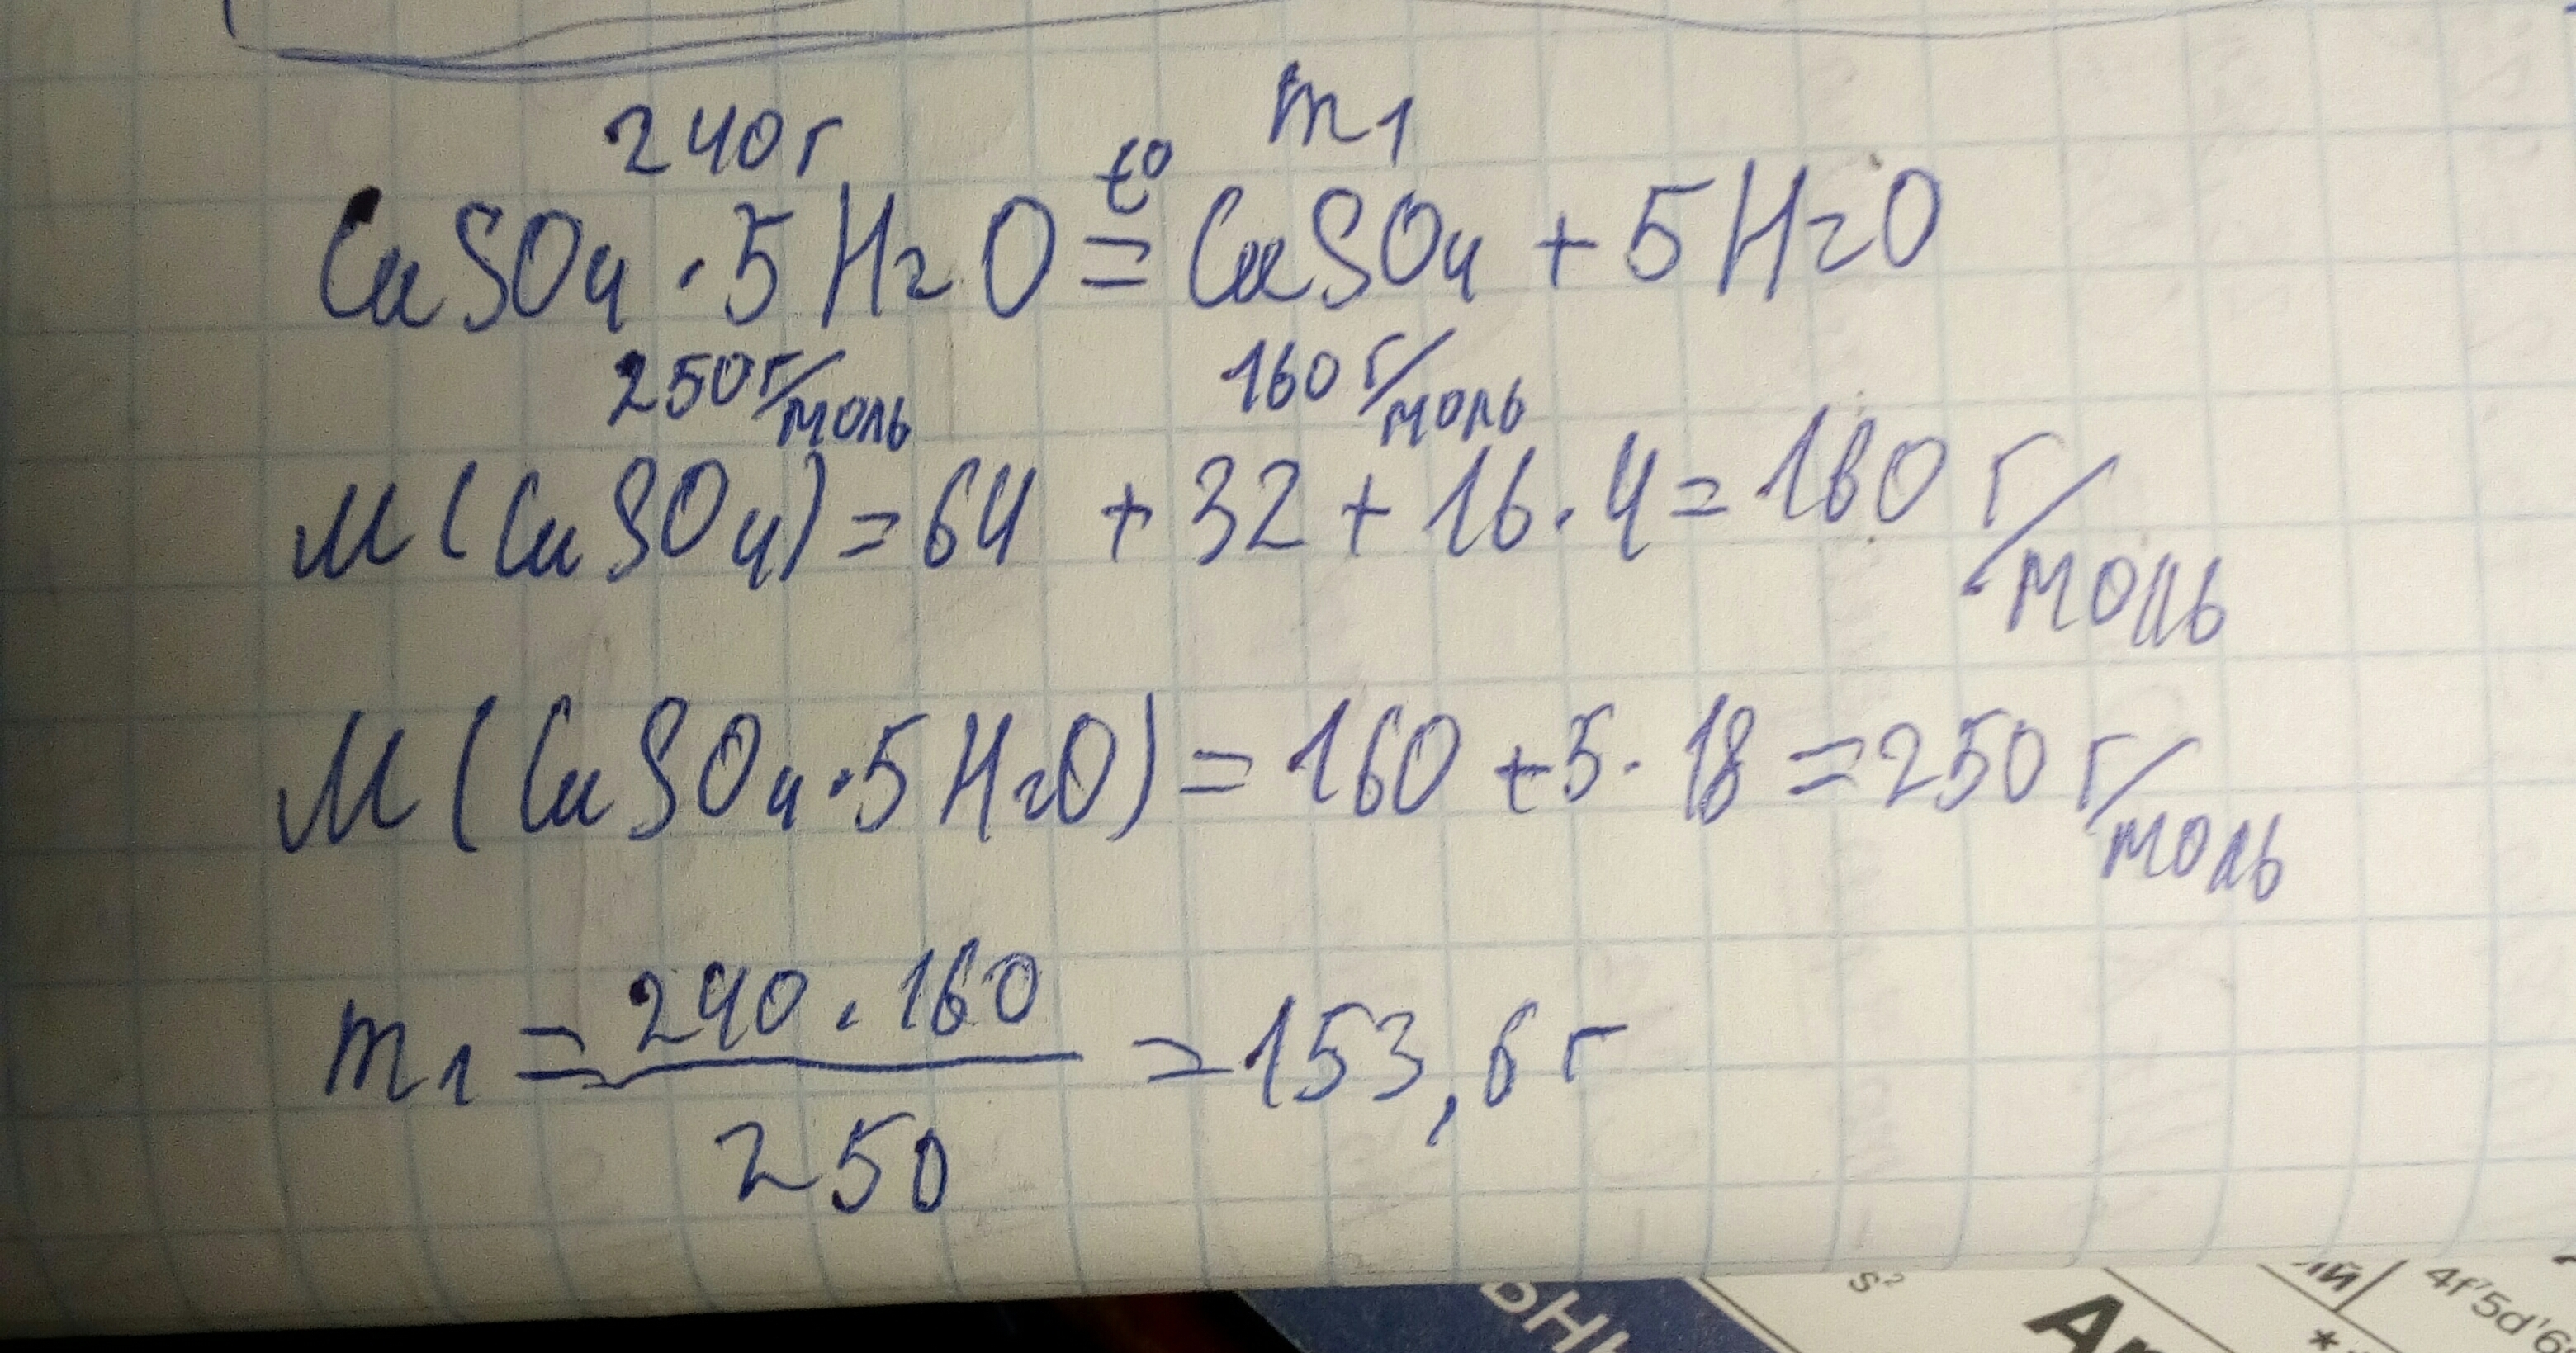 240г m1
CuSO4 · 5H2O t° = CuSO4 + 5H2O
250г/моль 160г/моль
M(CuSO4) = 64 + 32 + 16 · 4 = 160 г/моль
M(CuSO4 · 5H2O) = 160 + 5 · 18 = 250 г/моль
m1 = 240 · 160 / 250 = 153,6 г
ЬНЫ s² Ar ий 4f⁵5d¹6